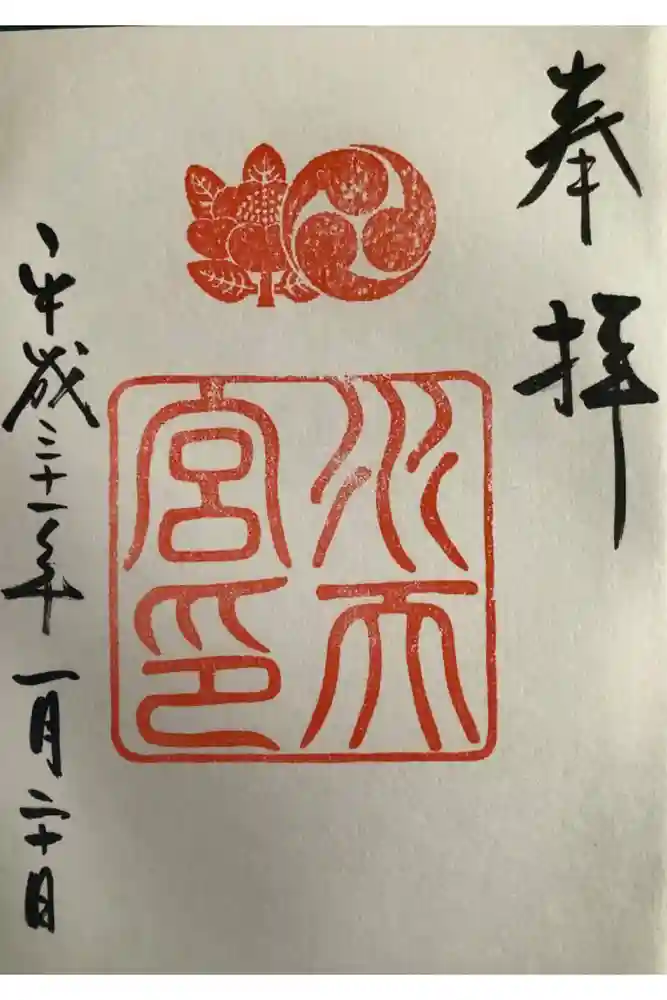 奉拝
水天宮印
平成三十一年一月二十日